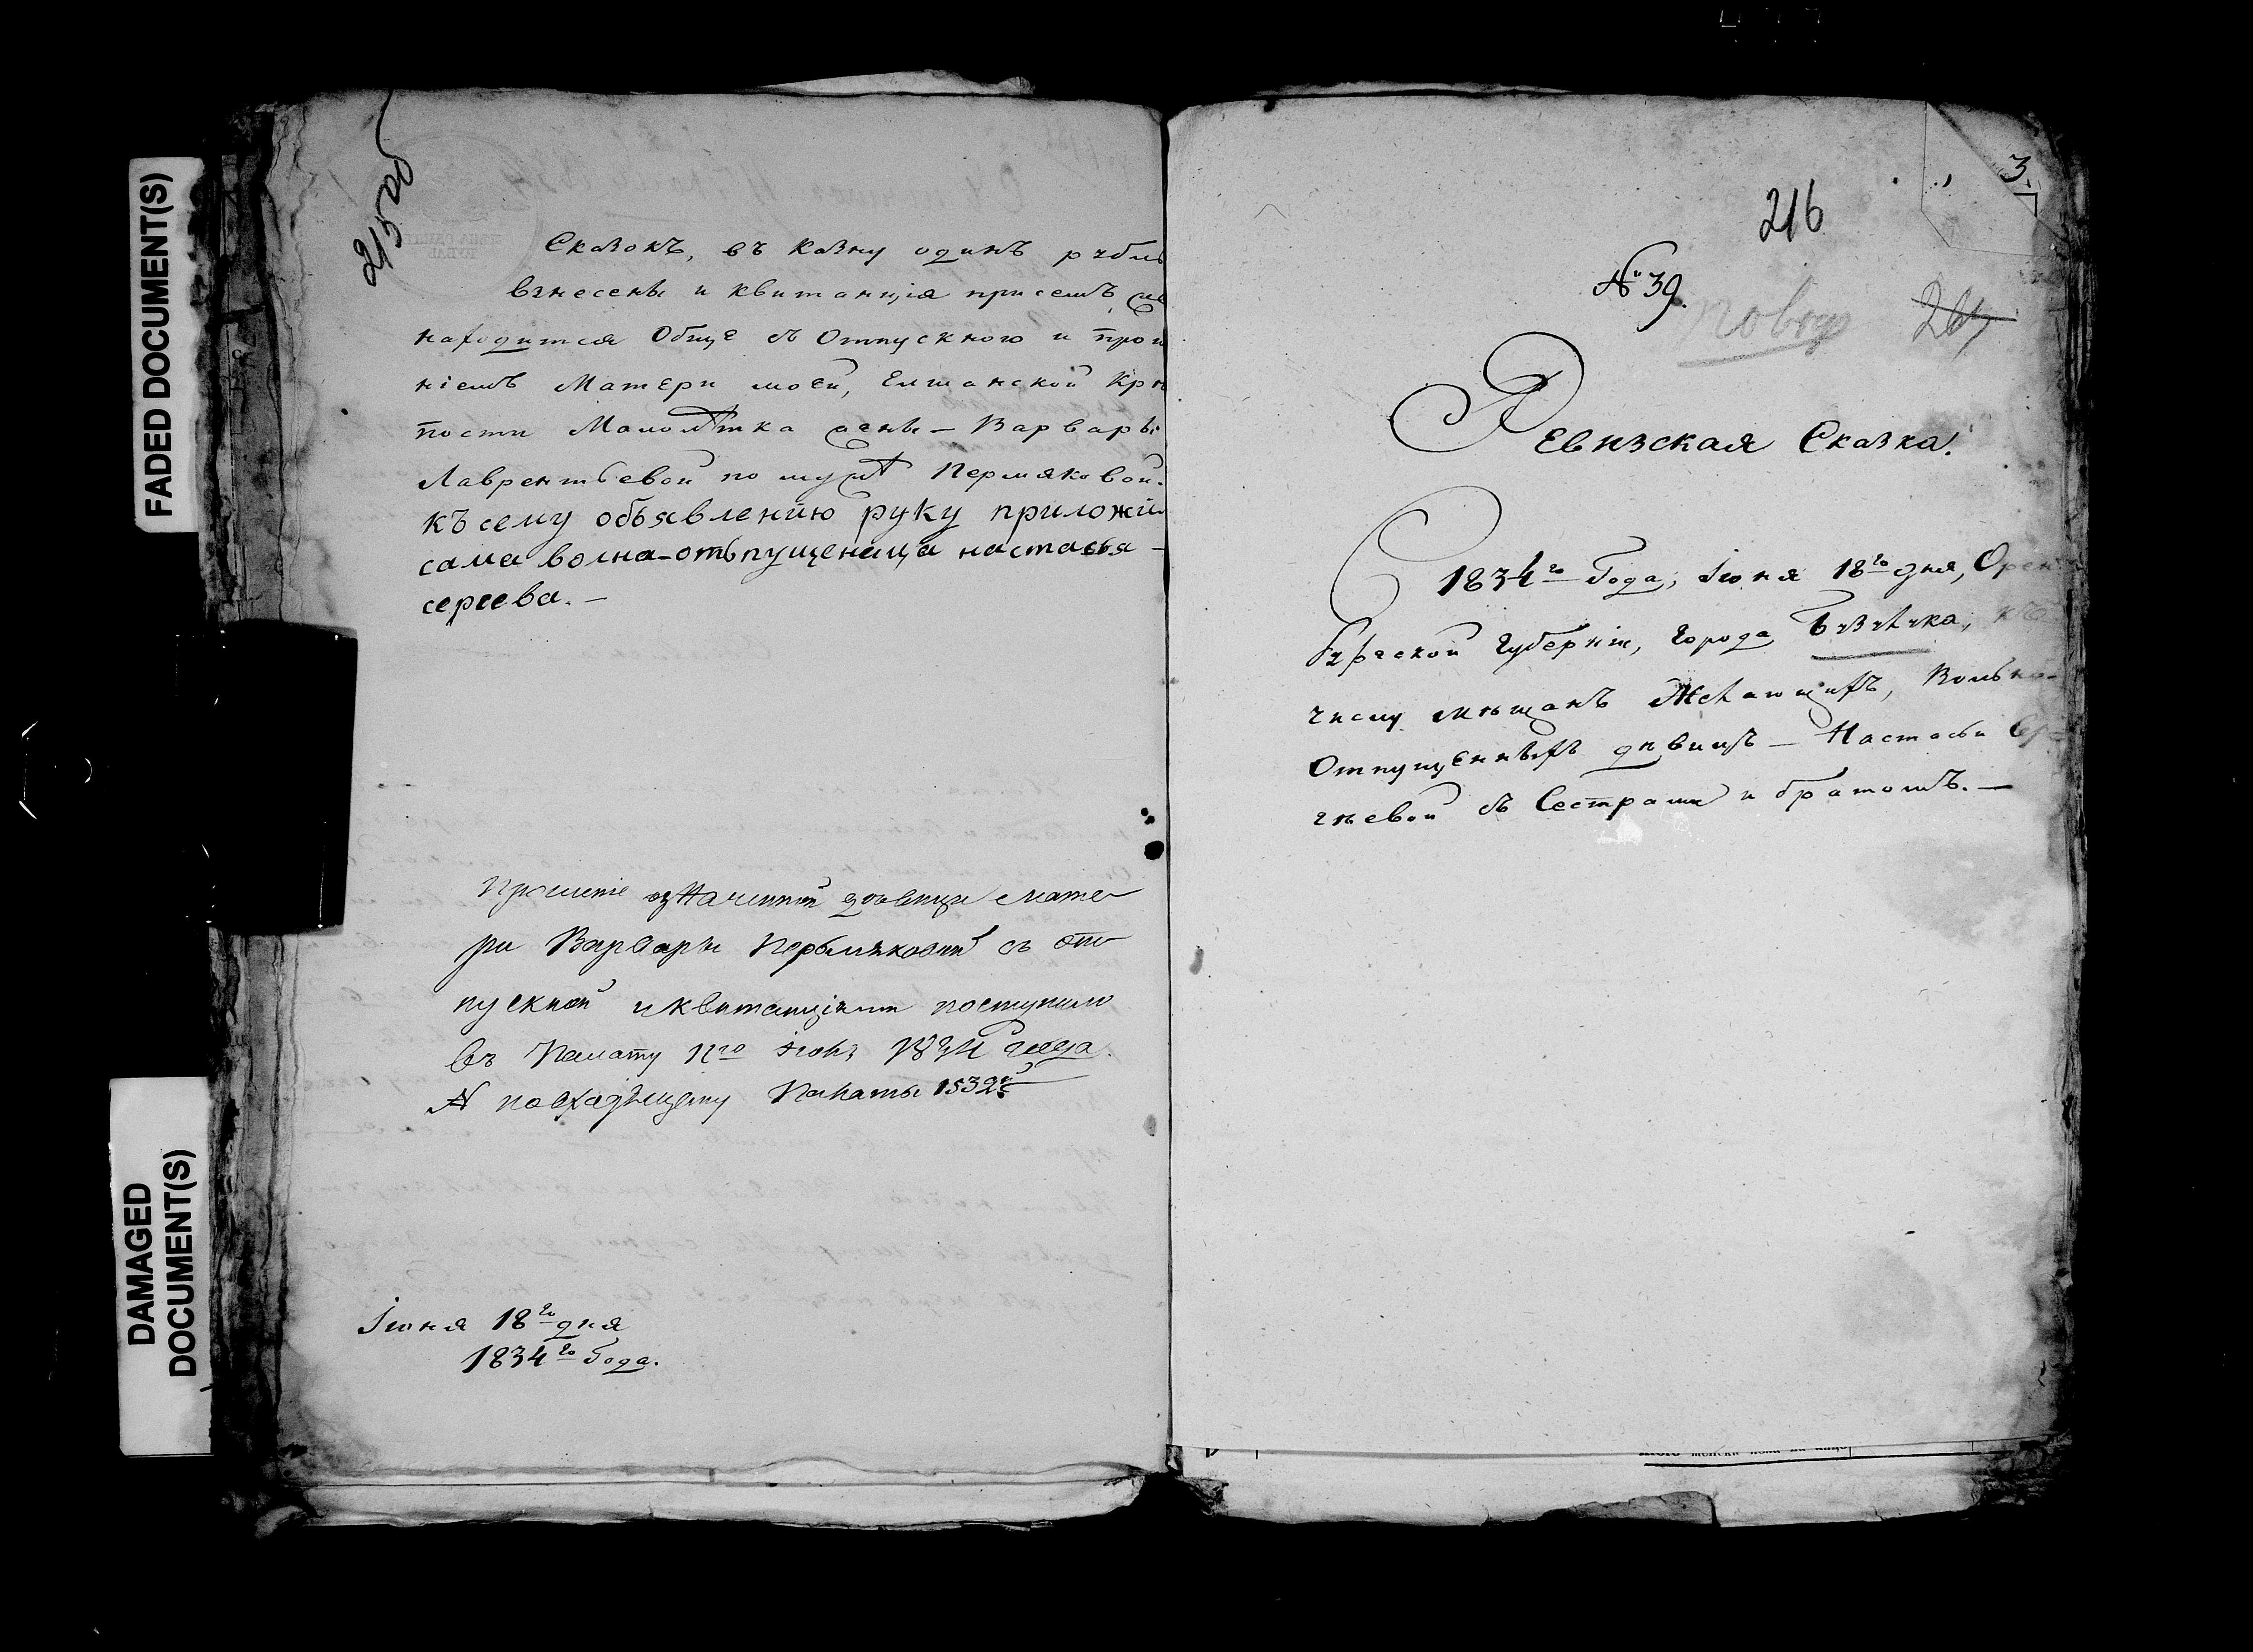 FADED DOCUMENT(S)
DAMAGED
DOCUMENT(S)
215 об
Сказокъ, въ казну одинъ рубль
взнесены и квитанція присемъ
находится Обще съ Отпускною и про
ніемъ Матери моей, Елшанской Крѣ
пости Малолѣтка жены – Варвары
Лаврентьевой по мужѣ Пермяковой.
къ сему объявленію руку приложи
сама волна-отьпущеница настасья –
сергева. –
Прошеніе означенной дѣвицы мате
ри Варвары Пермяковой съ от
пускной и квитанціями поступило
въ Палату июня 1834 года.
№ по входящему Палаты 1532й
Іюня 18го дня
1834го Года.
3
216
№ 39.
Ревизская Сказка.
1834го Года, Іюня 18го дня, Орен
бургской Губерніи, Города Бузулука, къ
числу мѣщанъ Желающихъ, Вольно-
Отпущенныхъ дѣвицъ – Настасьи Сер
гѣевой съ Сестрами и братомъ. –